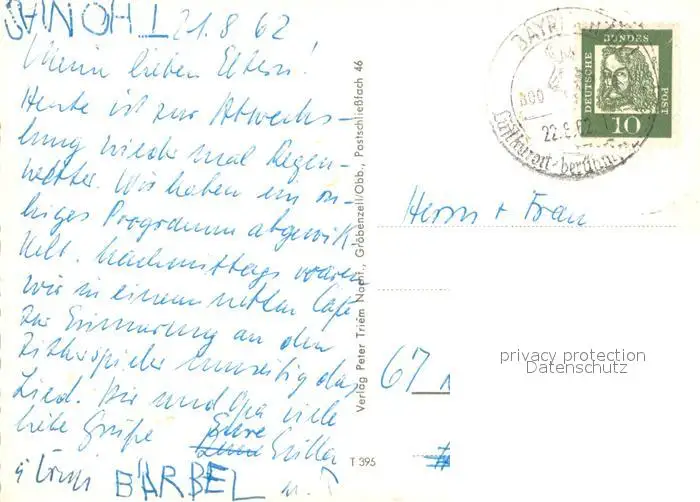 21.8 62
Meine lieben Eltern!
Heute ist zur Abwechs-
lung wieder mal Regen-
wetter. Wir haben ein ru-
higes Programm abgewik-
kelt. Nachmittags waren
wir in einem netten Café
Zur Erinnerung an den
Zitherspieler das
Lied. Dir und Opa viele
liebe Grüße Eure
BÄRBEL
Verlag Peter Triém Nachf., Gröbenzell/Obb., Postschließfach 46
T 395
BAYR
DEUTSCHE BUNDES POST
10
22.8.62
Luftkurort
Herrn + Frau
67
privacy protection
Datenschutz